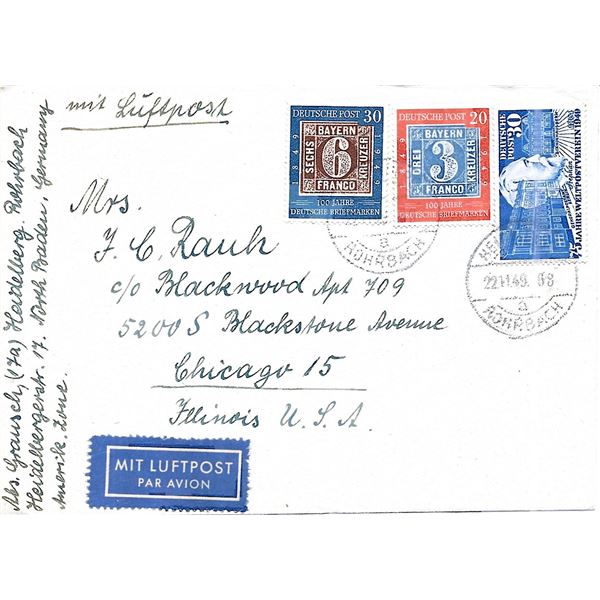 mit Luftpost
DEUTSCHE POST 30
1849
BAYERN
SECHS
6
KREUZER
FRANCO
1949
100 JAHRE
DEUTSCHE BRIEFMARKEN
DEUTSCHE POST 20
1849
BAYERN
DREI
3
KREUZER
FRANCO
1949
100 JAHRE
DEUTSCHE BRIEFMARKEN
DEUTSCHE
POST 30
75 JAHRE WELTPOSTVEREIN 1949
a
ROHRBACH
22.11.49.
a
ROHRBACH
Mrs.
F. C. Rauh
c/o Blackwood Apt 709
5200 S Blackstone Avenue
Chicago 15
Illinois U.S.A.
MIT LUFTPOST
PAR AVION
Abs. Grausch, (17a) Heidelberg-Rohrbach
Heidelbergerstr. 17. North Baden, Germany
Amerik. Zone.